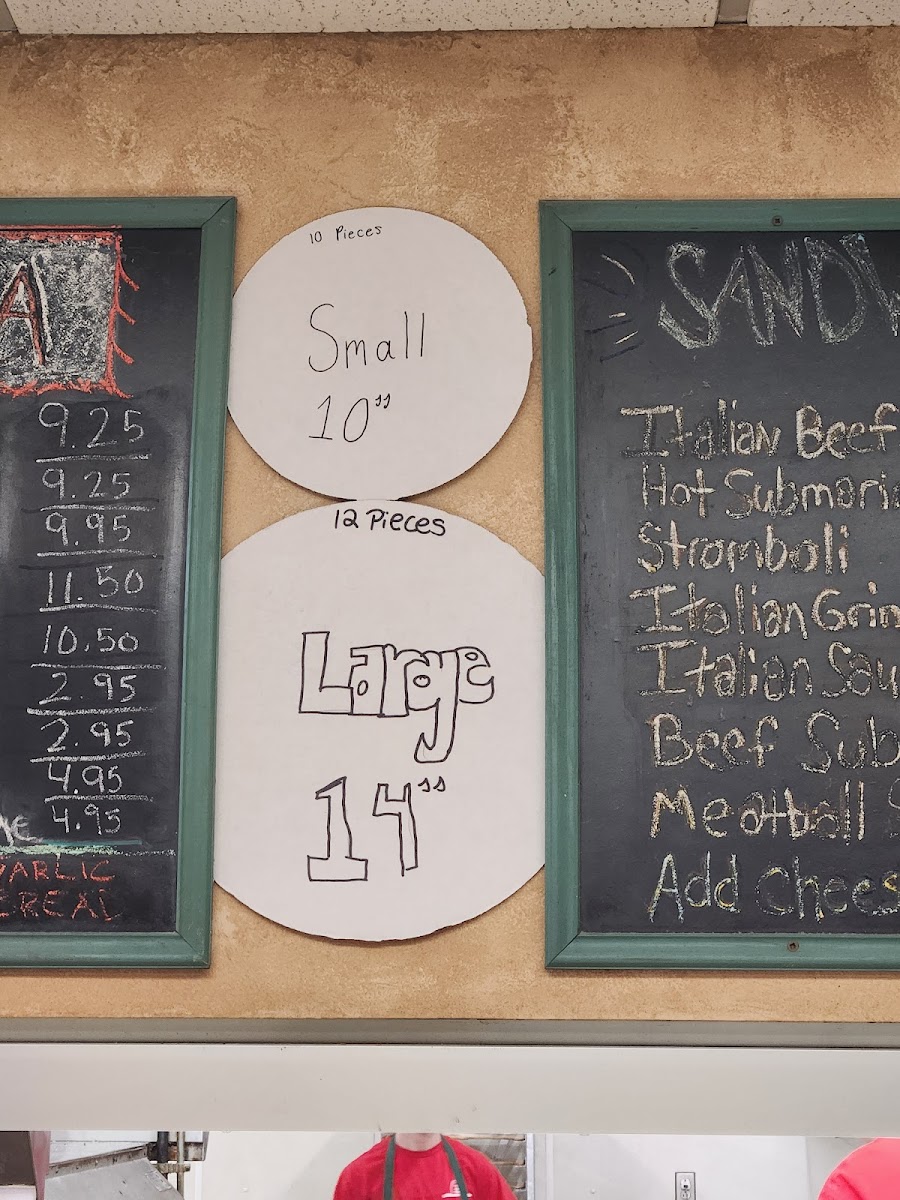 A
9.25
9.25
9.95
11.50
10.50
2.95
2.95
4.95
4.95
10 Pieces
Small
10"
12 Pieces
Large
14"
SANDW
Italian Beef
Hot Submari
Stromboli
Italian Grin
Italian Sau
Beef Sub
Meatball S
Add Chees